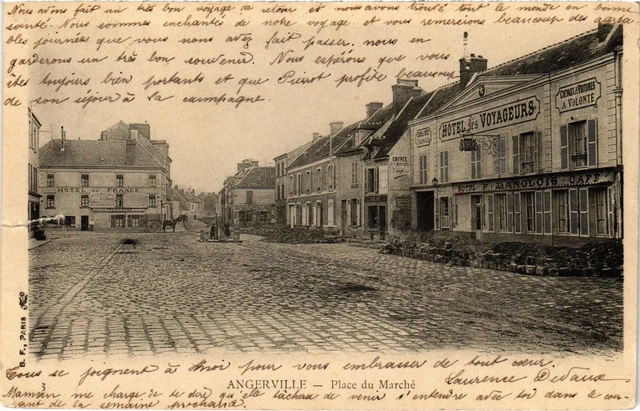 Nous avons fait un très bon voyage de retour et nous avons trouvé tout le monde en bonne
santé. Nous sommes enchantés de notre voyage et vous remercions beaucoup des agréa-
bles journées que vous nous avez fait passer, nous en
garderons un très bon souvenir. Nous espérons que vous
êtes toujours bien portants et que Pierrot profite beaucoup
de son séjour à la campagne.
HÔTEL DE FRANCE
HÔTEL des VOYAGEURS
CHEVAUX & VOITURES
A VOLONTÉ
ENTRÉE
HOTEL F. LANGLOIS CAFÉ
B. F., PARIS
Tous se joignent à moi pour vous embrasser de tout cœur.
ANGERVILLE — Place du Marché
Laurence Devaux
Maman me charge de te dire qu'elle tâchera de venir s'entendre avec toi dans le cou-
rant de la semaine prochaine.